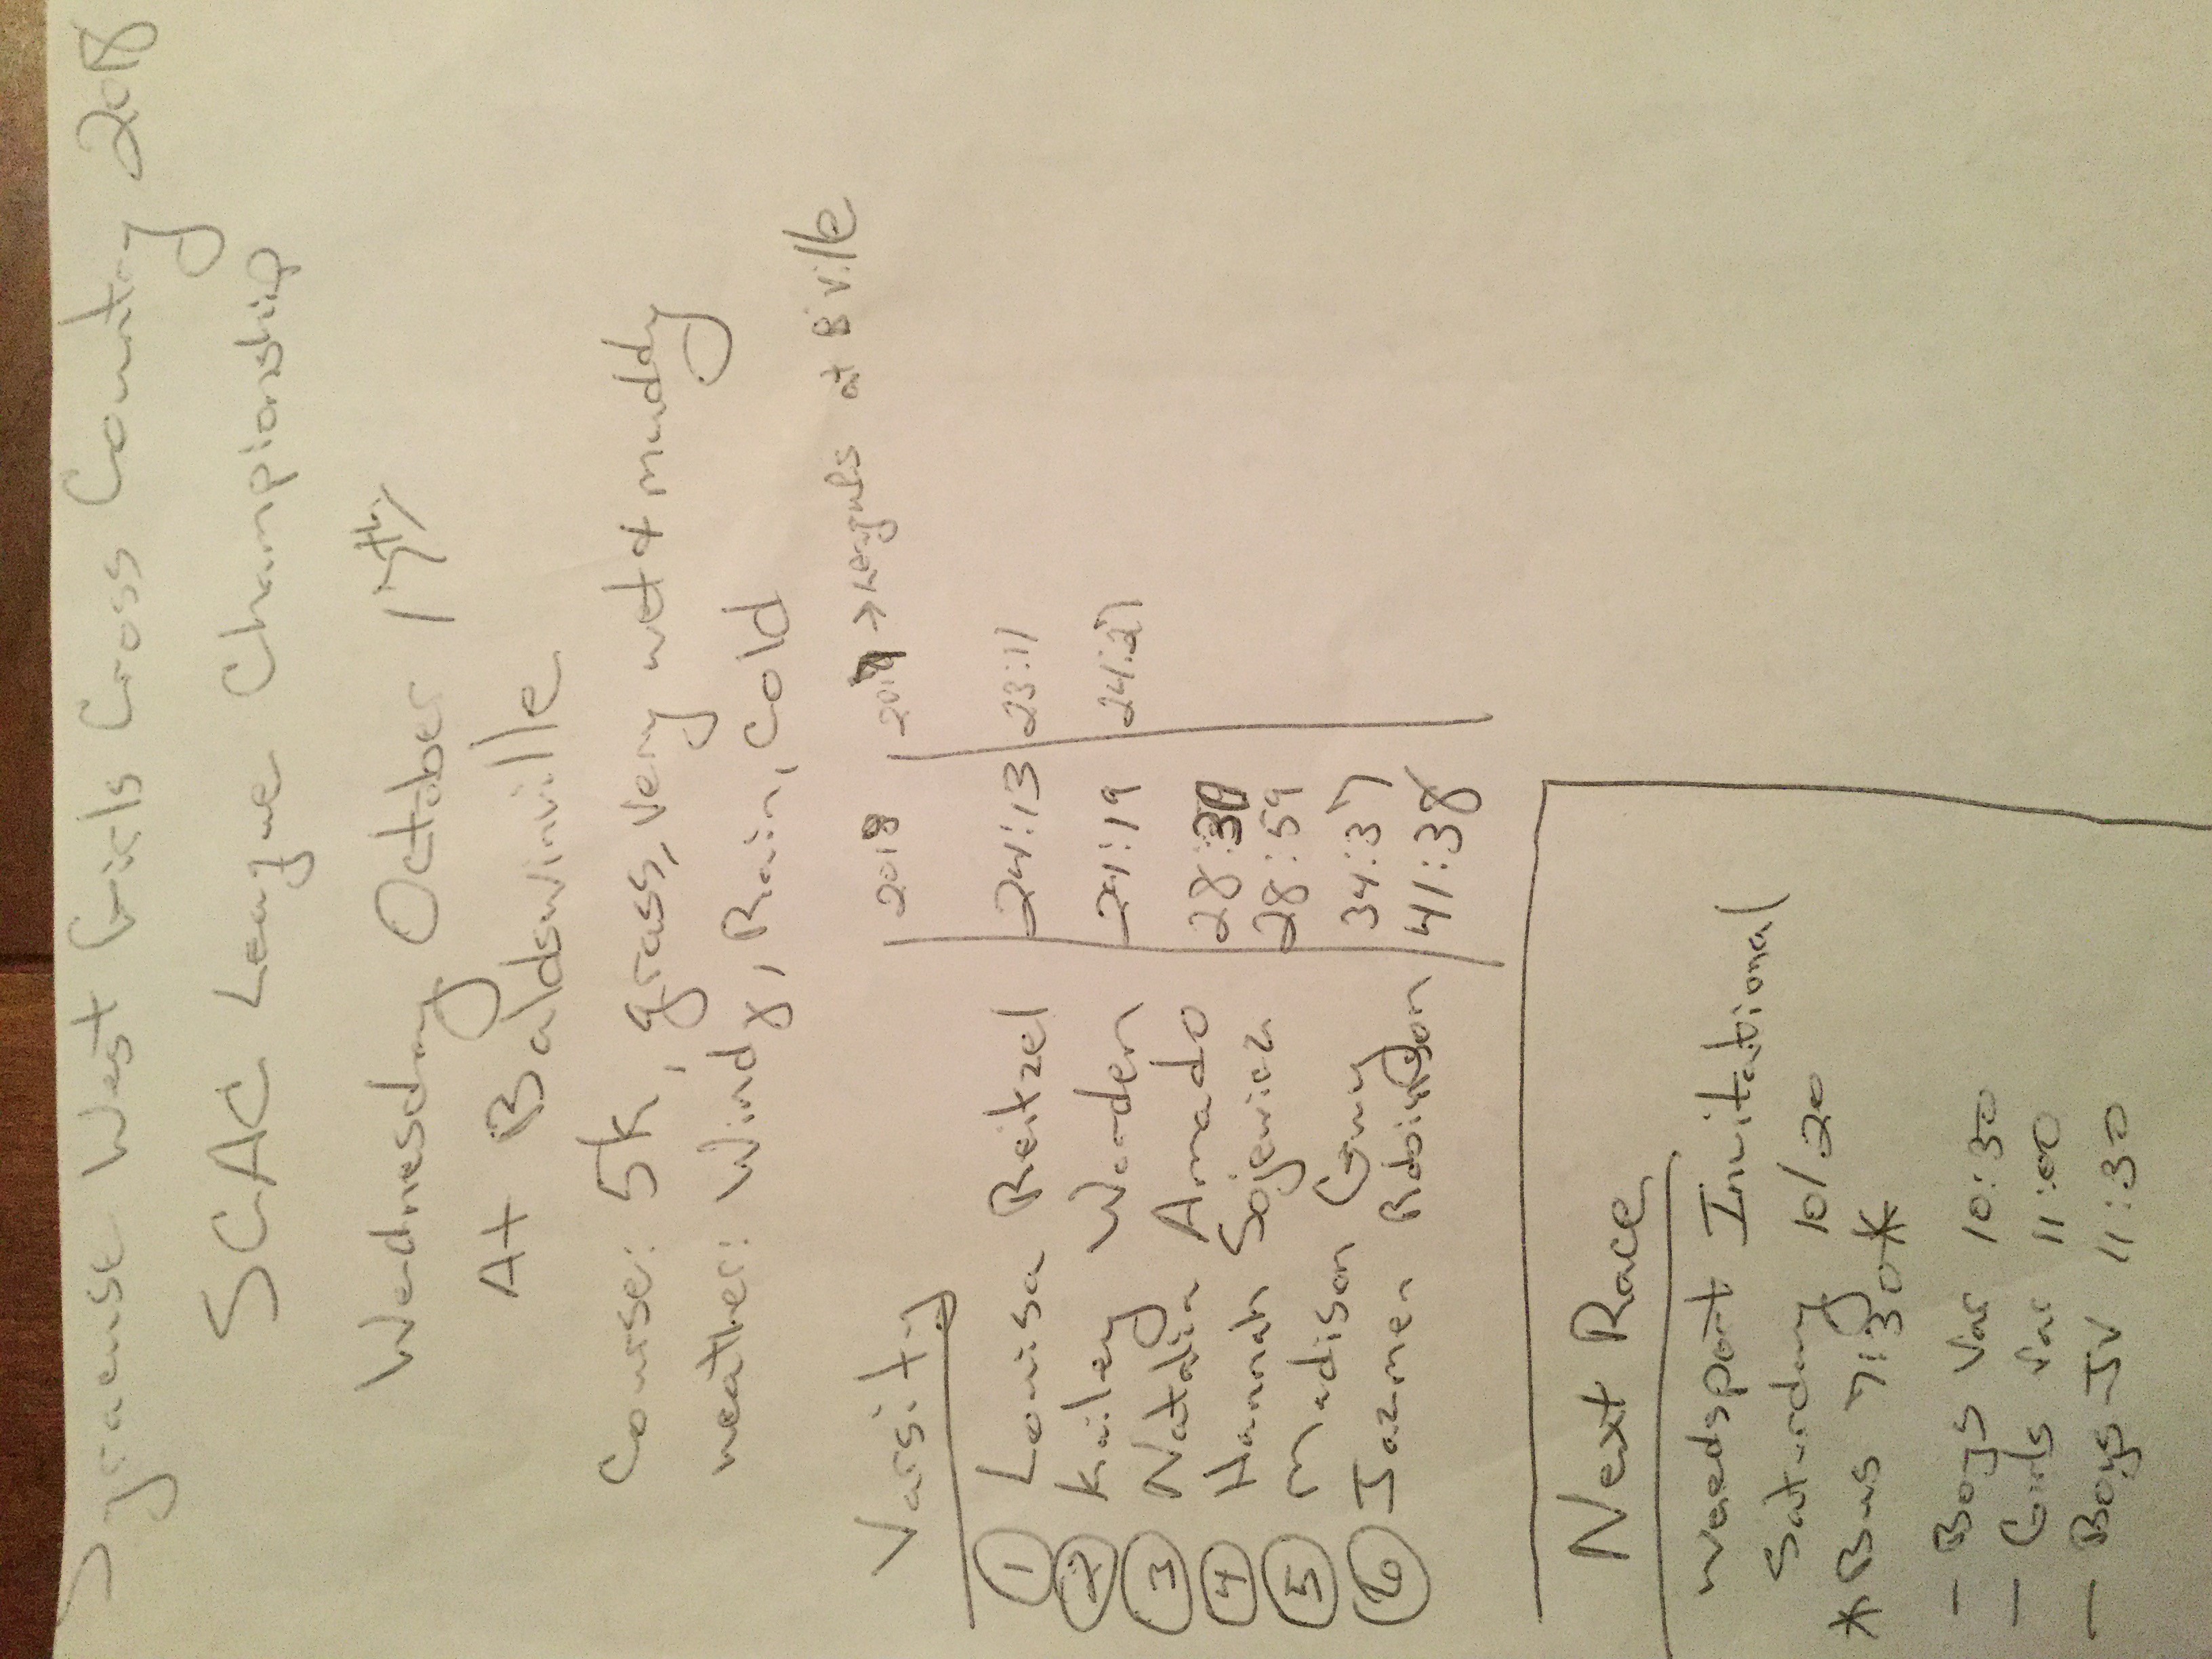 Syracuse West Girls Cross Country 2018
SCAC League Championship
Wednesday October 17th
At Baldswinville
Course: 5k, grass, very wet & muddy
weather: Windy, Rain, Cold
Varsity 2018 2017 → Leagues at B'ville
1 Louisa Reitzel 24:13 23:11
2 Kailey Worden 24:19 24:27
3 Natalia Amado 28:30
4 Hannah Sojewicz 28:59
5 Madison Guy 34:37
6 Jazmen Robinson 41:38
Next Race
Weedsport Invitational
Saturday 10/20
* Bus 7:30 *
- Boys Var 10:30
- Girls Var 11:00
- Boys JV 11:30